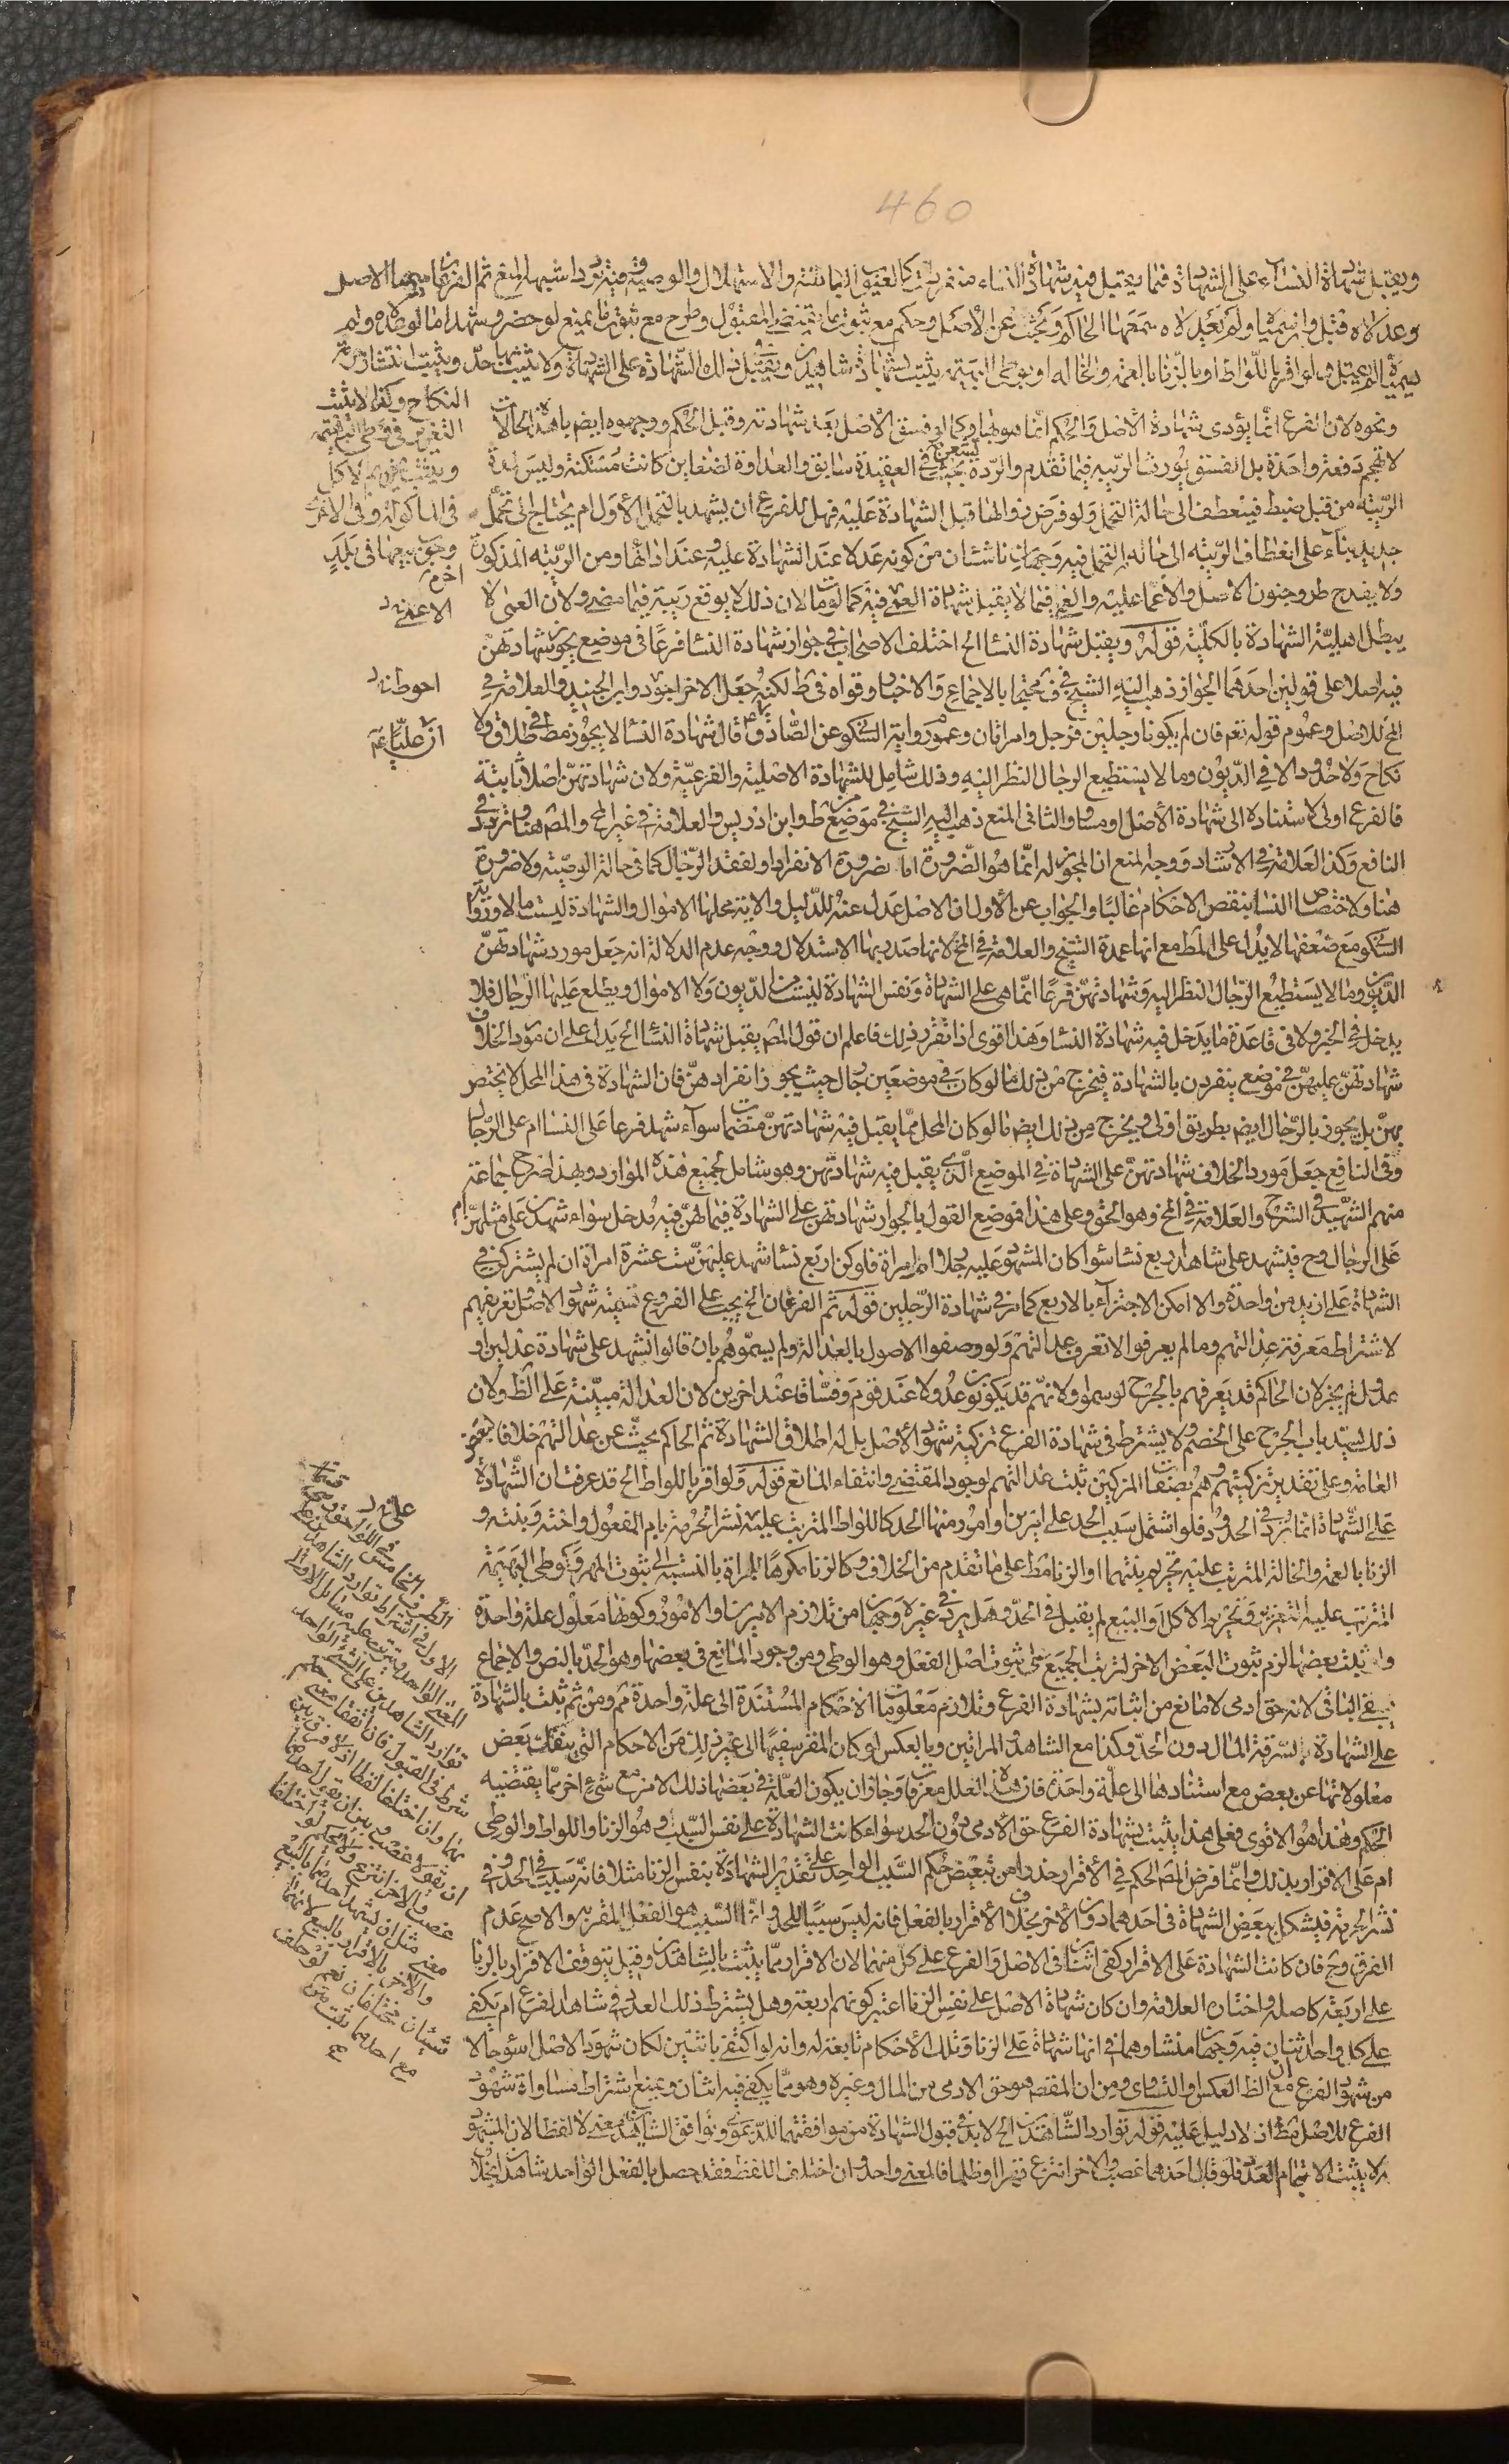 460
ويقبل شهادة النساء على الشهادة فيما يقبل فيه شهادة النساء منفردات كالعيوب الباطنة والاستهلال والوصية وفيه تردد اشبهه المنع ثم الفرعان ان سميا الاصل
وعدلاه قبل وان سمياه ولم يعدلاه سمعها الحاكم وبحث عن الاصل وحكم مع ثبوت ما يقتضى القبول وطرح مع ثبوت ما يمنع لو حضر وشهد اما لو عدلاه ولم
يسمياه لم يقبل ولو اقر باللواط او بالزنا بالعمة والخالة او بوطى البهيمة يثبت بشهادة شاهدين ويقبل فى ذلك الشهادة على الشهادة ولا يثبت بها حد ويثبت انتشار حرمة
النكاح وكذا لا يثبت
التعزير فى وطى البهيمة
ويثبت تحريم الاكل
فى الماكولة وفى الاخرى
وجوب بيعها فى بلد
اخر
ونحوه لان الفرع انما يؤدى شهادة الاصل والحكم انما هو بها وكما لو فسق الاصل بعد شهادته وقبل الحكم ووجهوه ايضا بان هذه الحالات
لا تهجم دفعة واحدة بل الفسق يورث الريبة فيما تقدم والردة تشعر بخبث فى العقيدة سابق والعداوة لضغاين كانت مستكنة وليس لمدة
الريبة من قبل ضبط فينعطف الى حالة التحمل ولو فرض زوالها قبل الشهادة عليه فهل للفرع ان يشهد بالتحمل الاول ام يحتاج الى تحمل
جديد بناء على انعطاف الريبة الى حالة التحمل فيه وجهان ناشئان من كونه عدلا عند الشهادة عليه وعند ادائها ومن الريبة المذكورة
ولا يقدح طرو جنون الاصل والاغماء عليه والعمى فيما لا يقبل شهادة العمى فيه كما لو مات لان ذلك لا يوقع ريبة فيما مضى ولان العمى لا
يبطل اهلية الشهادة بالكلية قوله ويقبل شهادة النسا الخ اختلف الاصحاب فى جواز شهادة النسا فرعا فى موضع يجوز شهادتهن
فيه اصلا على قولين احدهما الجواز ذهب اليه الشيخ فى ف محتجا بالاجماع والاخبار وقواه فى ط لكنه جعل الاخر احوط وابن الجنيد والعلامة فى
المخ للاصل وعموم قوله تعم فان لم يكونا رجلين فرجل وامراتان وعموم رواية السكونى عن الصادق ع قال شهادة النسا لا يجوز فى طلاق ولا
نكاح ولا حدود الا فى الديون وما لا يستطيع الرجال النظر اليه وذلك شامل للشهادة الاصلية والفرعية ولان شهادتهن اصلا ثابتة
فالفرع اولى لاستناده الى شهادة الاصل او مساو والثانى المنع ذهب اليه الشيخ فى موضع من ط وابن ادريس والعلامة فى غير المخ والمص هنا وتردد فى
النافع وكذا العلامة فى الارشاد ووجه المنع ان المجوز له انما هو الضرورة اما ضرورة الانفراد او لفقد الرجال كما فى حالة الوصية ولا ضرورة
هنا ولاختصاص النسا بنقص الاحكام غالبا والجواب عن الاول ان الاصل عدل عنه للدليل والاية محلها الاموال والشهادة ليست مالا ورواية
السكونى مع ضعفها لا يدل على المط مع انها عمدة الشيخ والعلامة فى المخ لانهما صدرا بها الاستدلال ووجه عدم الدلالة انه جعل مورد شهادتهن
الديون وما لا يستطيع الرجال النظر اليه وشهادتهن فرعا انما هى على الشهادة ونفس الشهادة ليست من الديون ولا الاموال ويطلع عليها الرجال فلا
يدخل فى الخبر ولا فى قاعدة ما يدخل فيه شهادة النسا وهذا اقوى اذا تقرر ذلك فاعلم ان قول المص يقبل شهادة النسا الخ يدل على ان مورد الخلاف
شهادتهن عليهن فى موضع ينفردن بالشهادة فيخرج من ذلك ما لو كان فى موضعين رجال حيث يجوز انفرادهن فان الشهادة فى هذا المحل لا يختص
بهن بل يجوز بالرجال ايضا بطريق اولى ويخرج من ذلك ايضا ما لو كان المحل مما يقبل فيه شهادتهن منضمات سوآء شهدن فرعا على النسا ام على الرجال
وفى النافع جعل مورد الخلاف شهادتهن على الشهادة فى الموضع الذى يقبل فيه شهادتهن وهو شامل لجميع هذه الموارد وبهذا صرح جماعة
منهم الشهيد فى الشرح والعلامة فى المخ وهو الحق وعلى هذا فموضع القول بالجواز شهادتهن على الشهادة فيما لهن فيه مدخل سواء شهدن على مثلهن ام
على الرجال وح فيشهد على شاهد اربع نسا سوا كان المشهود عليه رجلا ام امراة فلو كن اربع نسا شهد عليهن ست عشرة امراة ان لم يشتركن فى
الشهادة على ازيد من واحدة والا امكن الاجتزآء بالاربع كما مر فى شهادة الرجلين قوله ثم الفرعان الخ يجب على الفروع تسمية شهود الاصل وتعريفهم
لاشتراط معرفة عدالتهم وما لم يعرفوا لا تعرف عدالتهم ولو وصفوا الاصول بالعدالة ولم يسموهم بان قالوا نشهد على شهادة عدلين او
عدول لم يجز لان الحاكم قد يعرفهم بالجرح لو سموا ولانهم قد يكونون عدولا عند قوم وفساقا عند اخرين لان العدالة مبينة على الظ ولان
ذلك يسد باب الجرح على الخصم ولا يشترط فى شهادة الفرع تزكية شهود الاصل بل له اطلاق الشهادة ثم الحاكم يبحث عن عدالتهم خلافا لبعض
العامة وعلى تقدير تزكيتهم وهم بصفات المزكين تثبت عدالتهم لوجود المقتضى وانتفاء المانع قوله ولو اقر باللواط الخ قد عرفت ان الشهادة
على الشهادة انما ترد فى الحدود فلو اشتمل سبب الحد على امرين او امور منها الحد كاللواط المترتب عليه نشر الحرمة بام المفعول واخته وبنته و
الزنا بالعمة والخالة المترتب عليه تحريم بنتيهما او الزنا مط على ما تقدم من الخلاف وكالزنا مكرها للمراة بالنسبة الى ثبوت المهر وكوطى البهيمة
المترتب عليه التعزير وتحريم الاكل او البيع لم يقبل فى الحد وهل يرد فى غيره وجهان من تلازم الامرين او الامور وكونها معلول علة واحدة
واذا ثبت بعضها لزم ثبوت البعض الاخر لترتب الجميع على ثبوت اصل الفعل وهو الوطى ومن وجود المانع فى بعضها وهو الحد بالنص والاجماع
فيبقى الباقى لانه حق ادمى لا مانع من اثباته بشهادة الفرع وتلازم معلومات الاحكام المستندة الى علة واحدة ثم ومن ثم ثبت بالشهادة
على الشهادة بالسرقة المال دون الحد وكذا مع الشاهد والمراتين وبالعكس لو كان المقر سفيها الى غير ذلك من الاحكام التى ينفك بعض
معلولاتها عن بعض مع استنادها الى علة واحدة فان هذه العلل معرفات وجاز ان يكون العلة فى بعضها ذلك الامر مع شئ اخر مما يقتضيه
الحكم وهذا هو الاقوى فعلى هذا يثبت بشهادة الفرع حق الادمى دون الحد سواء كانت الشهادة على نفس السبب وهو الزنا واللواط والوطى
ام على الاقرار بذلك وانما فرض المص الحكم فى الاقرار حذرا من تبعيض حكم السبب الواحد على تقدير الشهادة بنفس الزنا مثلا فانه سبب فى الحد وفى
نشر الحرمة فيشكل تبعيض الشهادة فى احدهما دون الاخر بخلاف الاقرار بالفعل فانه ليس سببا للحد وانما السبب هو الفعل المقر به والاصح عدم
الفرق وح فان كانت الشهادة على الاقرار كفى اثنان فى الاصل والفرع على كل منهما لان الاقرار مما يثبت بالشاهدين وقيل يتوقف الاقرار بالزنا
على اربعة كاصله واختاره العلامة وان كان شهادة الاصل على نفس الزنا اعتبر كونهم اربعة وهل يشترط ذلك العدد فى شاهد الفرع ام يكفى
على كل واحد اثنان فيه وجهان منشاوهما فى انها شهادة على الزنا وتلك الاحكام تابعة له وانه لو اكتفى باثنين لكان شهود الاصل اسوء حالا
من شهود الفرع مع ان الظ العكس او التساوى ومن ان المقصود هو حق الادمى من المال وغيره وهو مما يكفى فيه اثنان ويمنع اشتراط مساواة شهود
الفرع للاصل مط اذ لا دليل عليه قوله توارد الشاهدين الخ لا بد فى قبول الشهادة من موافقتهما للدعوى وتوافق الشاهدين معنى لا لفظا لان المشهود
به لا يثبت الا بتمام العدد فلو قال احدهما غصب والاخر انتزع قهرا او ظلما فالمعنى واحد وان اختلف اللفظ فقد حصل بالفعل الواحد شاهدان بخلاف
الاعمى
احوط
ان عليا ع
الطرف الخامس فى اللواحق وهى قسمان
الاول فى اشتراط توارد الشاهدين على
المعنى الواحد ويترتب عليه مسائل الاولى
توارد الشاهدين على الشئ الواحد
شرط فى القبول فان اتفقا معنى حكم
بهما وان اختلفا لفظا اذ لا فرق بين
ان يقولا غصب وبين ان يقول احدهما
غصب والاخر انتزع ولا يحكم لو اختلفا
معنى مثل ان يشهد احدهما بالبيع
والاخر بالاقرار بالبيع لانهما
شيئان مختلفان نعم لو حلف
مع احدهما ثبت